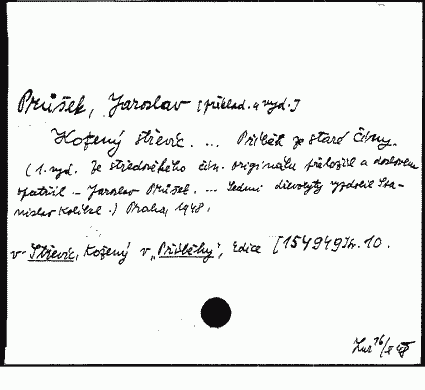 Průšek, Jaroslav [překlad. a vyd.]
Kožený střevíc. ... Příběh ze staré Číny.
(1. vyd. Ze středověkého čín. originálu přeložil a doslovem
opatřil - Jaroslav Průšek. ... Sedmi dřevoryty vyzdobil Sta-
nislav Kolíbal.) Praha, 1948.
v Střevíc, Kožený v „Příběhy", Edice [154949]Sv. 10.